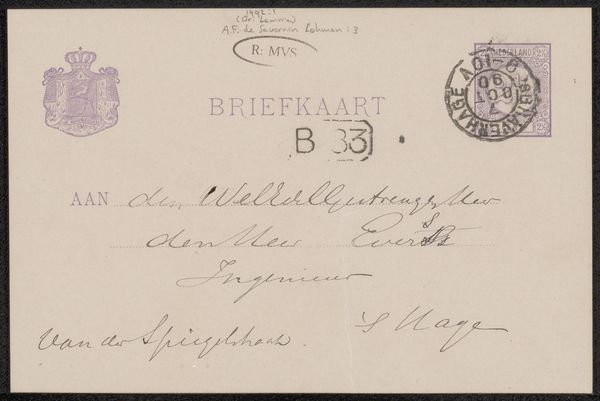 1992:1
(Dr. Lemma)
A.F. de Savornin Lohman: 3
R: MVS
NEDERLAND
'S GRAVENHAGE
7
OCT
90
BRIEFKAART
B 33
AAN den WelEdelGestrengen Heer
den Heer Evers
Ingenieur
van der Spiegelstraat.
's Hage